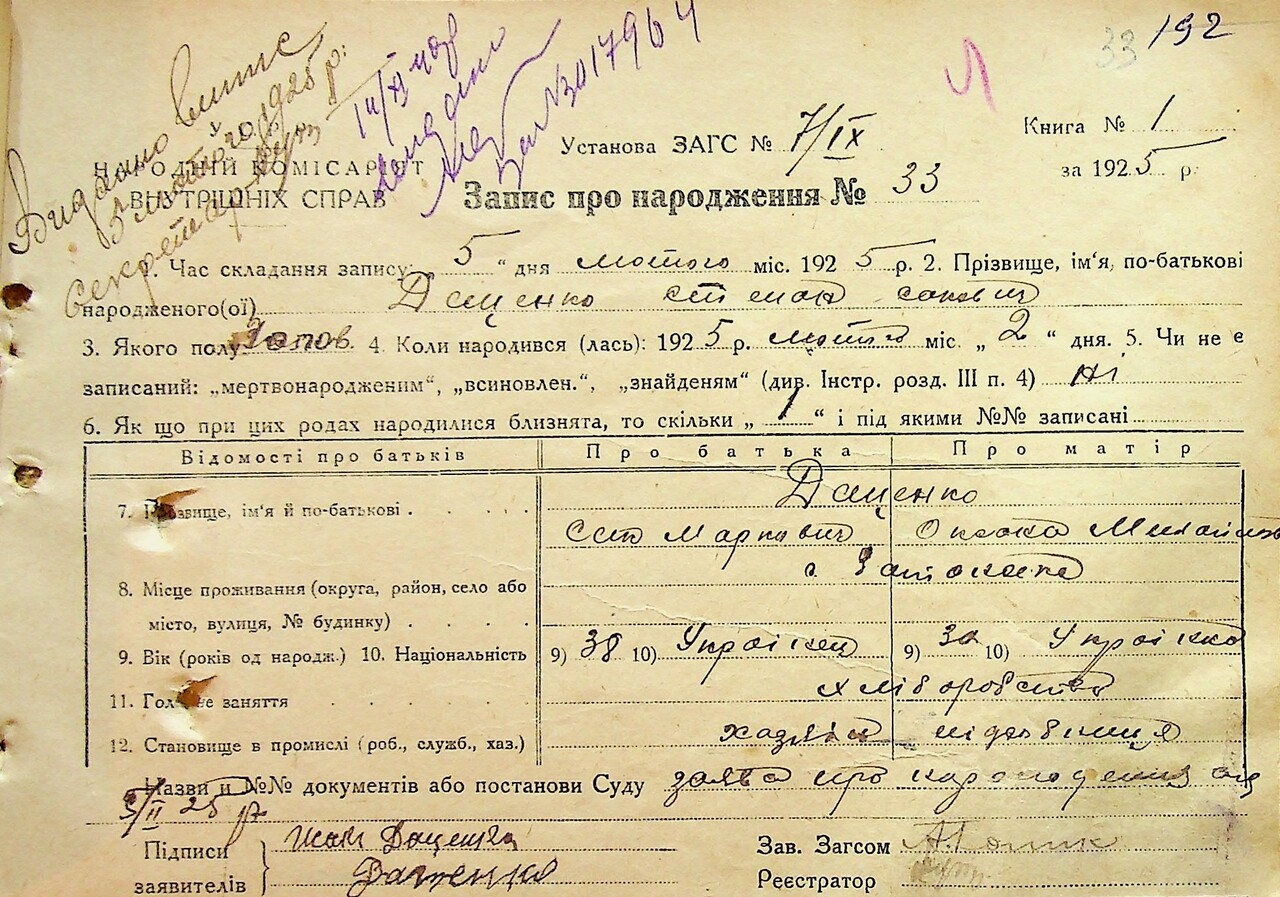 33 192
Видано витяг
5 лютого 1925 р.
14/XI
№ 3017964
НАРОДНІЙ КОМІСАРІЯТ
ВНУТРІШНІХ СПРАВ
Установа ЗАГС № 7/IX
Книга № 1
за 1925 р.
Запис про народження № 33
1. Час складання запису: „5“ дня лютого міс. 1925 р. 2. Прізвище, ім'я, по-батькові
народженого(ої) Даценко Степан
3. Якого полу 4. Коли народився (лась): 1925 р. лютого міс. „2“ дня. 5. Чи не є
записаний: „мертвонародженим“, „всиновлен.“, „знайденям“ (див. Інстр. розд. III п. 4) ні
6. Як що при цих родах народилися близнята, то скільки „1“ і під якими №№ записані
Відомості про батьків Про батька Про матір
7. Прізвище, ім'я й по-батькові Даценко
Маркович
8. Місце проживання (округа, район, село або
місто, вулиця, № будинку)
9. Вік (років од народж.) 10. Національність 9) 38 10) Українец 9) 30 10) Українка
11. Головне заняття хліборобство
12. Становище в промислі (роб., служб., хаз.) хазяїн
Назви и №№ документів або постанови Суду заява про народження від
5/II 25 р.
Підписи
заявителів
Даценко
Зав. Загсом
Реєстратор